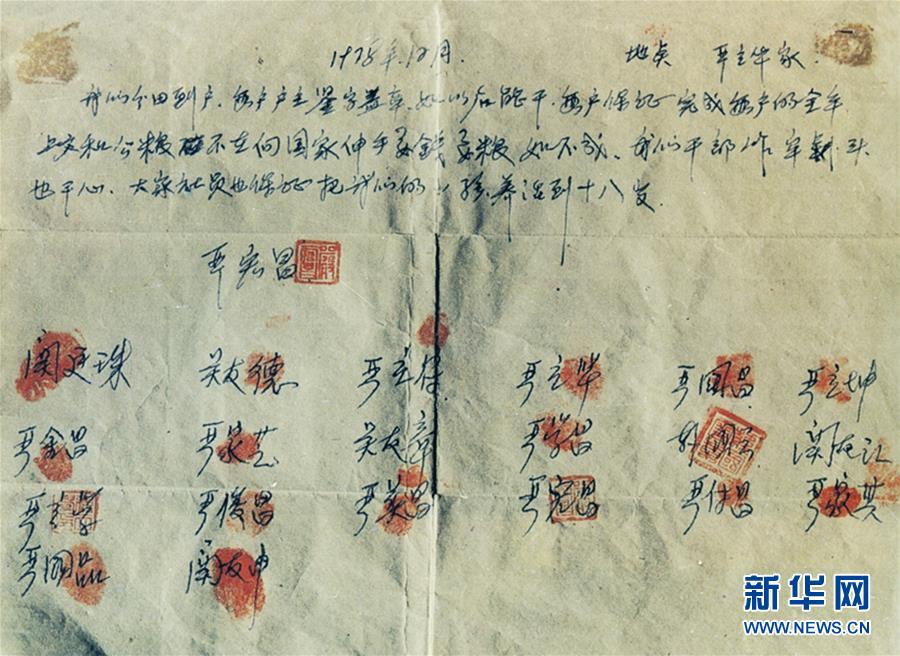 1978年12月. 地点 严立华家.
我们分田到户,每户户主签字盖章,如以后能干,每户保证完成每户的全年
上交和公粮不在向国家伸手要钱要粮如不成,我们干部作牢刹头
也干心,大家社员也保证把我们的小孩养活到十八岁.
严宏昌
関廷珠 关友德 严立符 严立华 严国昌 严立坤
严金昌 严家芝 关友章 严学昌 韩国云 関友江
严立学 严俊昌 严美昌 严宏昌 严付昌 严家其
严国品 関友申
新华网
WWW.NEWS.CN